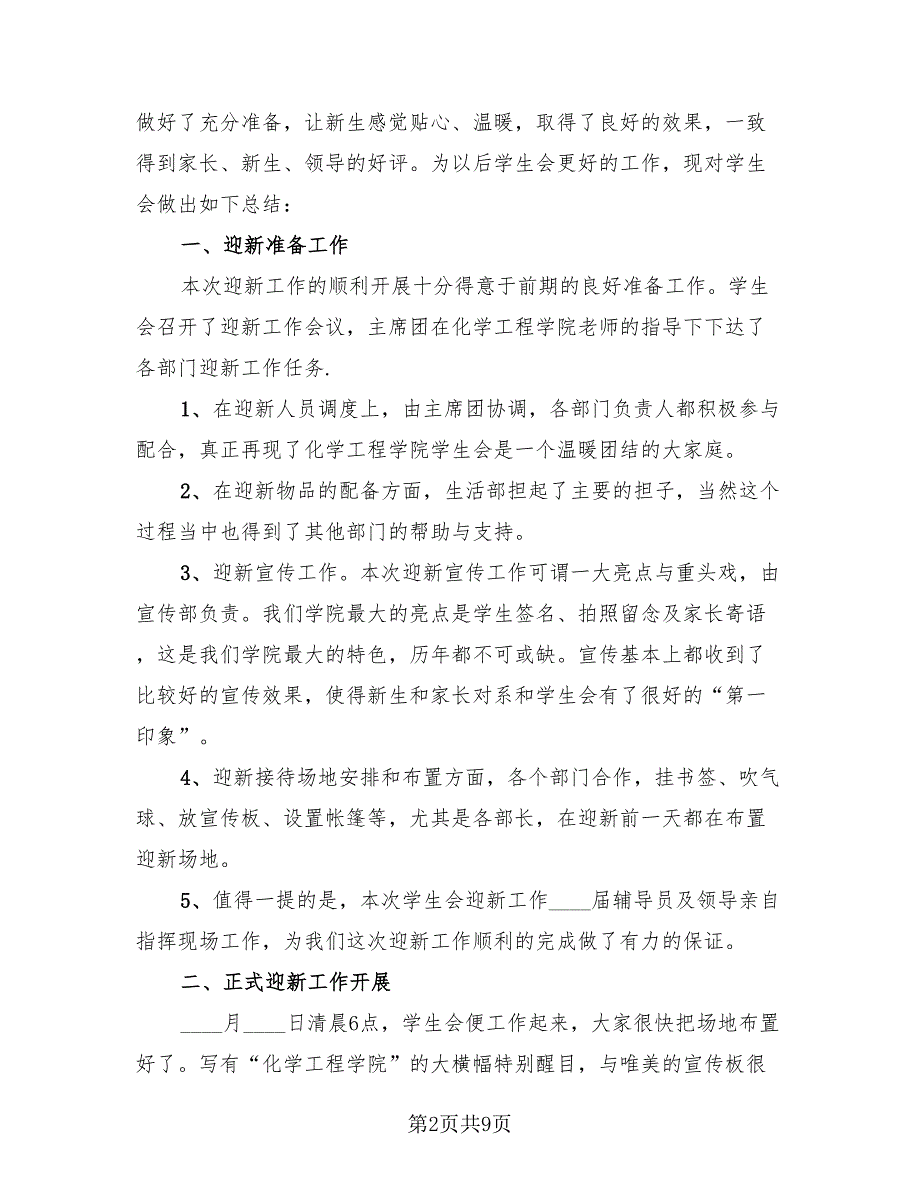 做好了充分准备，让新生感觉贴心、温暖，取得了良好的效果，一致
得到家长、新生、领导的好评。为以后学生会更好的工作，现对学生
会做出如下总结：
一、迎新准备工作
本次迎新工作的顺利开展十分得意于前期的良好准备工作。学生
会召开了迎新工作会议，主席团在化学工程学院老师的指导下下达了
各部门迎新工作任务.
1、在迎新人员调度上，由主席团协调，各部门负责人都积极参与
配合，真正再现了化学工程学院学生会是一个温暖团结的大家庭。
2、在迎新物品的配备方面，生活部担起了主要的担子，当然这个
过程当中也得到了其他部门的帮助与支持。
3、迎新宣传工作。本次迎新宣传工作可谓一大亮点与重头戏，由
宣传部负责。我们学院最大的亮点是学生签名、拍照留念及家长寄语
，这是我们学院最大的特色，历年都不可或缺。宣传基本上都收到了
比较好的宣传效果，使得新生和家长对系和学生会有了很好的“第一
印象”。
4、迎新接待场地安排和布置方面，各个部门合作，挂书签、吹气
球、放宣传板、设置帐篷等，尤其是各部长，在迎新前一天都在布置
迎新场地。
5、值得一提的是，本次学生会迎新工作____届辅导员及领导亲自
指挥现场工作，为我们这次迎新工作顺利的完成做了有力的保证。
二、正式迎新工作开展
____月____日清晨6点，学生会便工作起来，大家很快把场地布置
好了。写有“化学工程学院”的大横幅特别醒目，与唯美的宣传板很
第2页共9页